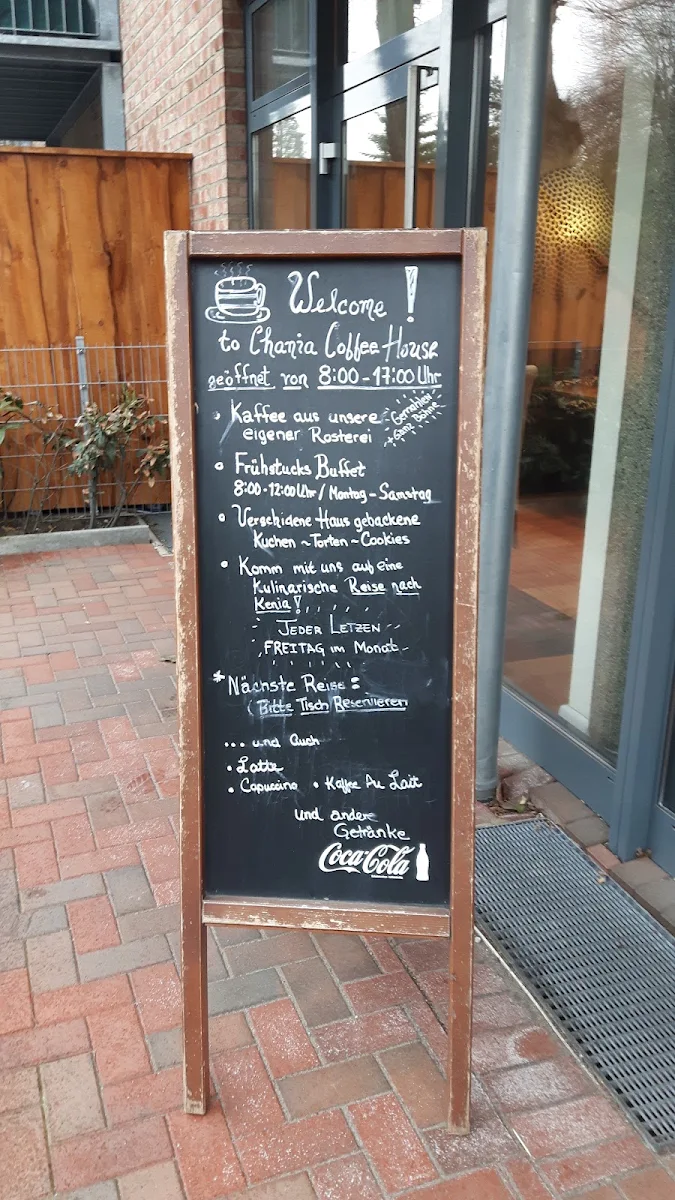 Welcome!
to Chania Coffee House
geöffnet von 8:00-17:00 Uhr
Kaffee aus unsere
eigener Rösterei
Gemahlen
+ Ganz Bohne
Frühstucks Buffet
8:00-12:00 Uhr / Montag - Samstag
Verschidene Haus gebackene
Kuchen ~ Torten ~ Cookies
Komm mit uns auf eine
Kulinarische Reise nach
Kenia!
JEDER LETZEN
FREITAG im Monat
* Nächste Reise:
(Bitte Tisch Reservieren
... und Auch
• Latte
• Capuccino • Kaffee Au Lait
und andere
Getränke
Coca-Cola